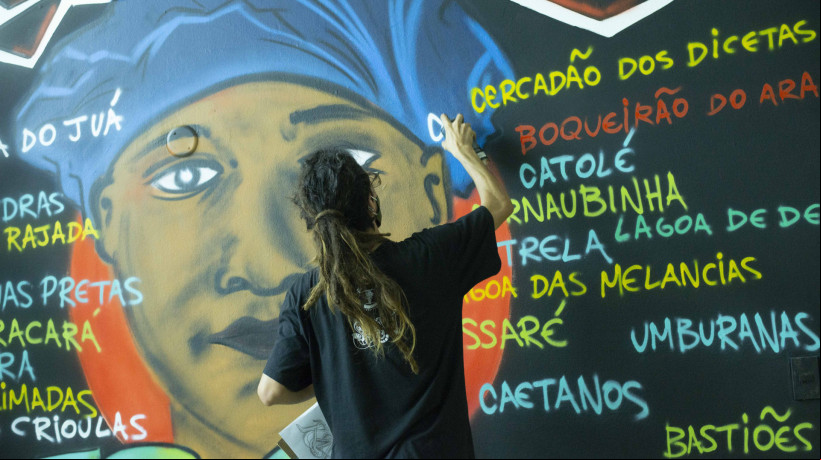 DO JUÁ
RAJADA
PRETAS
CRIOULAS
CERCADÃO DOS DICETAS
BOQUEIRÃO DO ARA
CATOLÉ
RNAUBINHA
LAGOA DE DE
TRELA
GOA DAS MELANCIAS
SSARÉ
UMBURANAS
CAETANOS
BASTIÕES